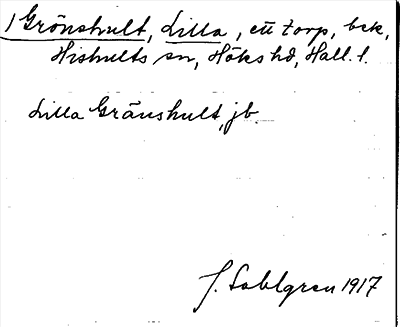 1 Grönshult, Lilla, ett torp, bek,
Hishults sn, Höks hd, Hall. l.
Lilla Gränshult, jb.
J. Sahlgren 1917